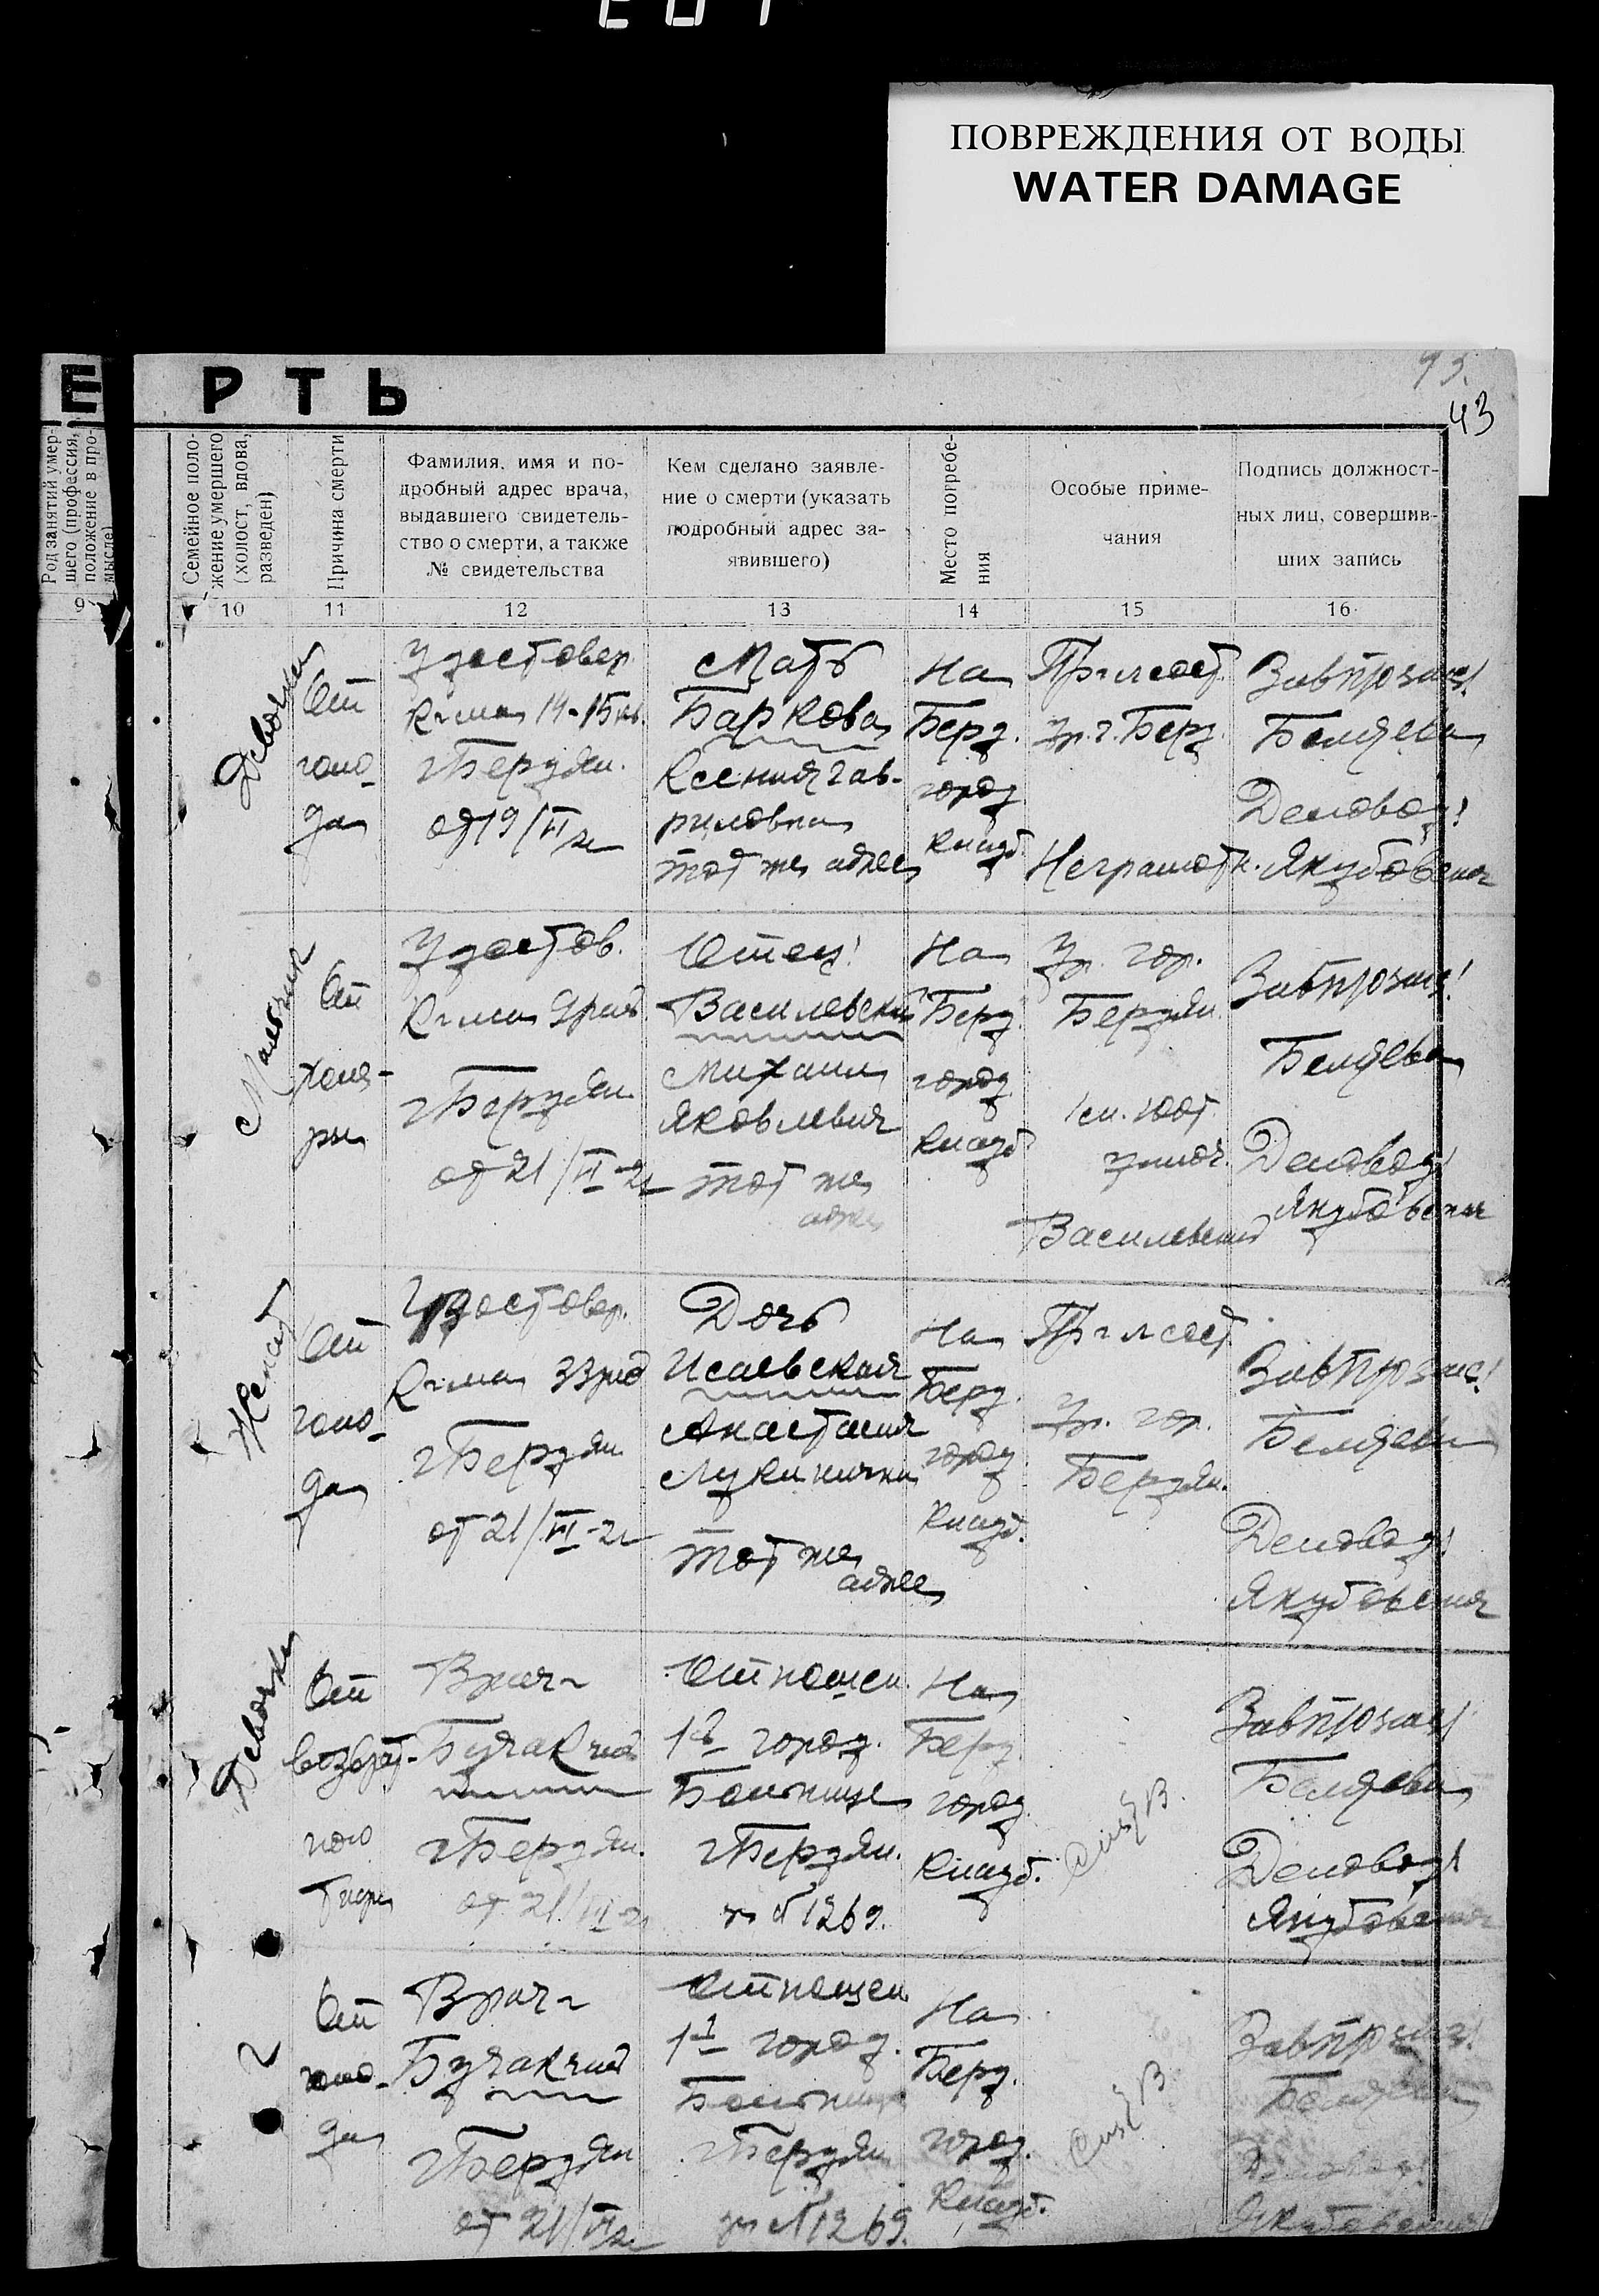 ПОВРЕЖДЕНИЯ ОТ ВОДЫ
WATER DAMAGE
93.
43
Е РТЬ
Род занятий умер-
шего (профессия,
положение в про-
мысле)
Семейное поло-
жение умершего
(холост, вдова,
разведен)
Причина смерти
Фамилия, имя и по-
дробный адрес врача,
выдавшего свидетель-
ство о смерти, а также
№ свидетельства
Кем сделано заявле-
ние о смерти (указать
подробный адрес за-
явившего)
Место погребе-
ния
Особые приме-
чания
Подпись должност-
ных лиц, совершив-
ших запись
9
10
11
12
13
14
15
16
Девочка
От
голо-
да
Удостовер.
14-15 кв.
г Бердян.
от 19/VI
Мать
Баркова
Ксения Гав-
риловна
тот же адрес
На
Берд.
город
кладб
гр. г. Берд.
Неграмотн.
Беляева
Деловод!
Якубовская
Мальчик
От
холе-
ры
Удостов.
г Бердян.
от 21/VI-2
Отец!
Василевский
Михаил
Яковлевич
тот же
адрес
На
Берд.
город
кладб
Гр. гор.
Бердян.
Василевский
Беляева
Деловод!
Якубовская
Женат
От
голо-
да
Удостовер.
г Бердян
от 21/VI-2
Дочь
Исаевская
Анастасия
Лукинична
тот же
адрес
На
Берд.
город
кладб.
Гр. гор.
Бердян.
Беляева
Деловод!
Якубовская
Девочка
От
возврат-
ного
тифа
Врач
Бучакчий
г Бердян.
от 21/VI-2
Отношен.
1й город.
Больнице
г Бердян.
за № 1269.
На
Берд
город.
кладб.
Беляева
Деловод!
Якубовская
От
голо-
да
Врач
Бучакчий
г Бердян
от 21/VI
Отношен
1й город.
Больнице
г Бердян
за № 1269.
На
Берд.
город.
кладб.
Беляева
Деловод!
Якубовская